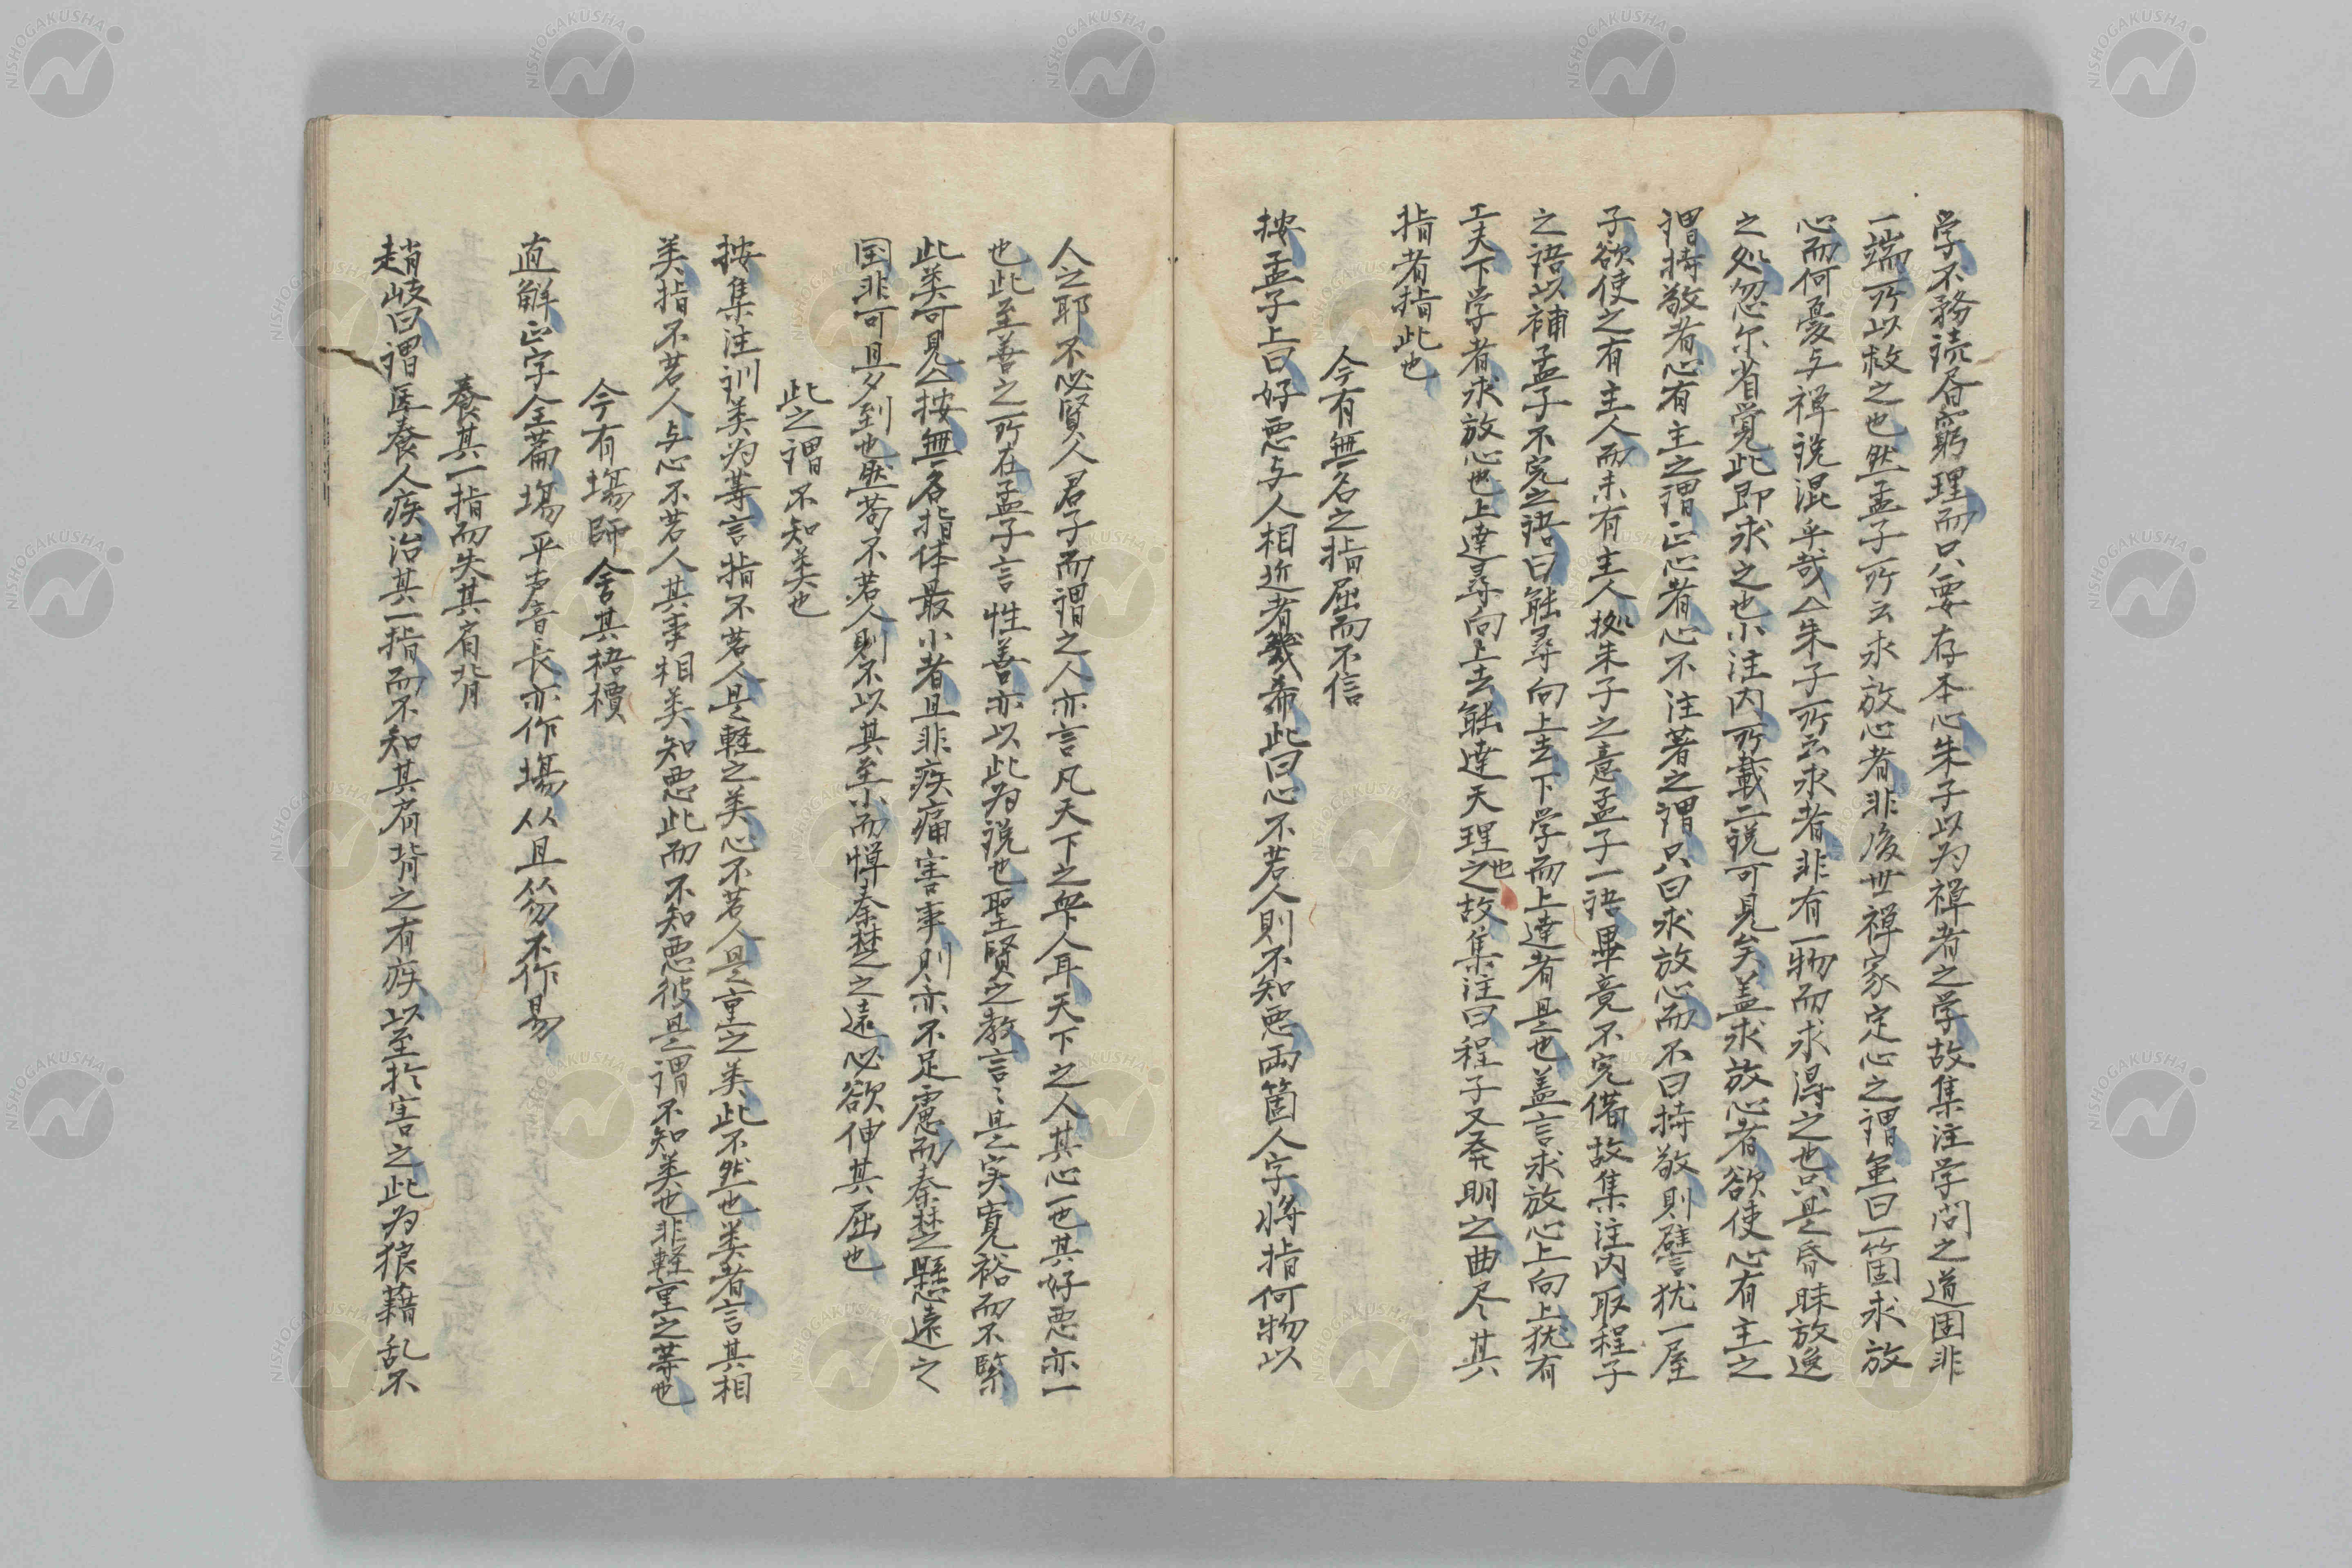 学不務読居窮理而只要存本心朱子以为禅者之学故集注学问之道固非
一端所以救之也然孟子所云求放心者非後世禅家定心之謂虽曰一箇求放
心而何憂与禅说混乎哉△朱子所云求者非有一物而求得之也只是昏昧放逸
之处忽尔省覚此即求之也小注内所載二说可見矣盖求放心者欲使心有主之
謂持敬者心有主之謂正心者心不注著之謂只曰求放心而不曰持敬則譬犹一屋
子欲使之有主人而未有主人拠朱子之意孟子一语畢竟不完備故集注内取程子
之语以補孟子不完之语曰能尋向上去下学而上達者是也盖言求放心上向上犹有
工夫下学者求放心也上達尋向上去能達天理之也故集注曰程子又発明之曲尽其
指者指此也
今有無名之指屈而不信
按孟子上曰好悪与人相近者幾希此曰心不若人則不知悪両箇人字将指何物以
人之耶不必賢人君子而謂之人亦言凡天下之衆人耳天下之人其心一也其好悪亦一
也此至善之所在孟子言性善亦以此为说也聖賢之教言〻是实寛裕而不緊
此类可見△按無名指体最小者且非疾痛害事則亦不足慮而秦楚之懸遠之
国非可旦夕到也然苟不若人則不以其至小而憚秦楚之遠必欲伸其屈也
此之謂不知类也
按集注训类为等言指不若人是軽之类心不若人是重之类此不然也类者言其相
类指不若人与心不若人其事相类知悪此而不知悪彼是謂不知类也非軽重之等也
今有塲師舍其梧檟
直解正字全篇塲平声音长亦作場从且从勿不作昜
養其一指而失其肩背
趙岐曰謂医養人疾治其一指而不知其肩背之有疾以至於害之此为狼藉乱不